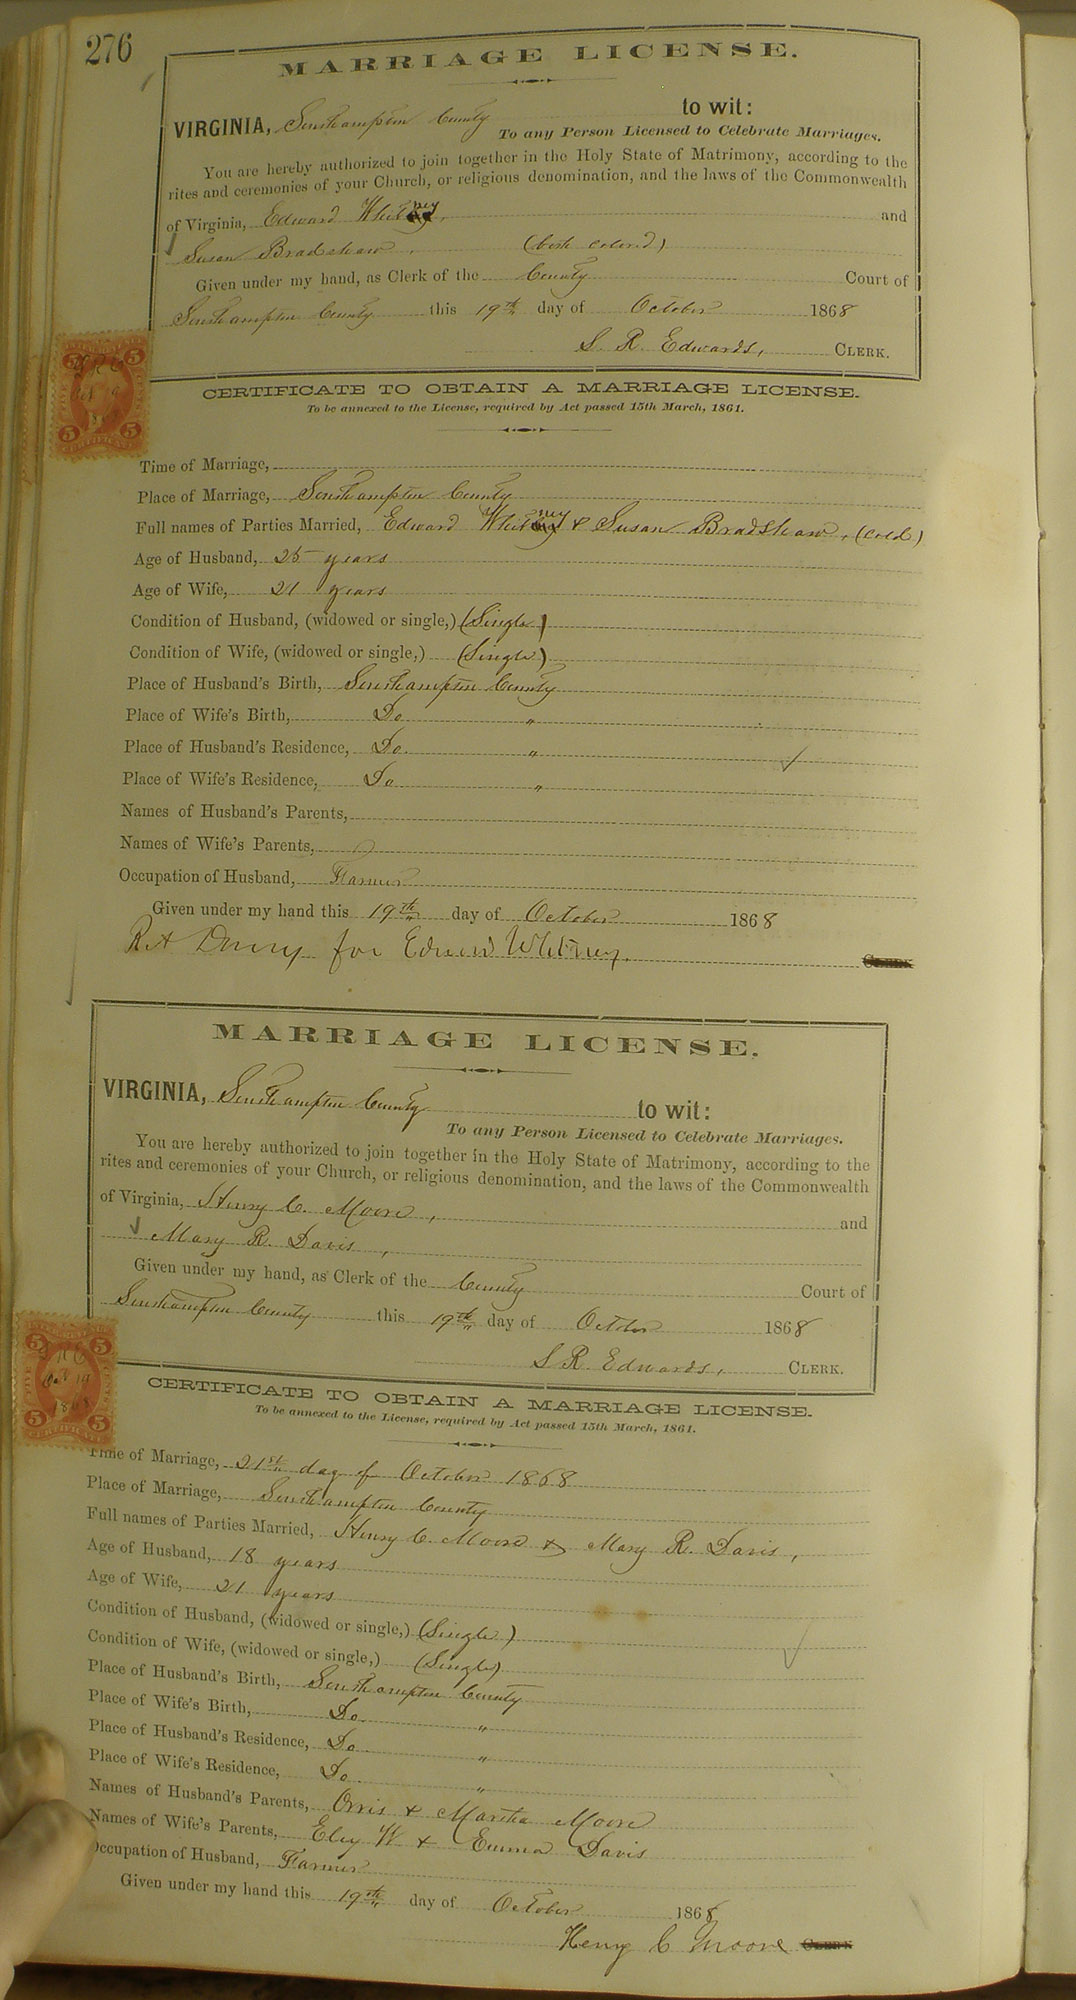 276
MARRIAGE LICENSE.
VIRGINIA, Southampton County to wit:
To any Person Licensed to Celebrate Marriages.
You are hereby authorized to join together in the Holy State of Matrimony, according to the
rites and ceremonies of your Church, or religious denomination, and the laws of the Commonwealth
of Virginia, Edward Whitney, and
Susan Bradshaw, (both colored)
Given under my hand, as Clerk of the County Court of
Southampton County this 19th day of October 1868
S. R. Edwards, CLERK.
5 5
Oct 19
1868
5 5
CERTIFICATE
CERTIFICATE TO OBTAIN A MARRIAGE LICENSE.
To be annexed to the License, required by Act passed 15th March, 1861.
Time of Marriage,
Place of Marriage, Southampton County
Full names of Parties Married, Edward Whitney & Susan Bradshaw, (cold)
Age of Husband, 25 years
Age of Wife, 21 years
Condition of Husband, (widowed or single,) (Single)
Condition of Wife, (widowed or single,) (Single)
Place of Husband's Birth, Southampton County
Place of Wife's Birth, Do "
Place of Husband's Residence, Do "
Place of Wife's Residence, Do "
Names of Husband's Parents,
Names of Wife's Parents,
Occupation of Husband, Farmer
Given under my hand this 19th day of October 1868
R.A for Whitney. CLERK
MARRIAGE LICENSE.
VIRGINIA, Southampton County to wit:
To any Person Licensed to Celebrate Marriages.
You are hereby authorized to join together in the Holy State of Matrimony, according to the
rites and ceremonies of your Church, or religious denomination, and the laws of the Commonwealth
of Virginia, Henry C. Moore, and
Mary R. Davis,
Given under my hand, as Clerk of the County Court of
Southampton County this 19th day of October 1868
S R. Edwards, CLERK.
5 5
Oct 19
1868
5 5
CERTIFICATE
CERTIFICATE TO OBTAIN A MARRIAGE LICENSE.
To be annexed to the License, required by Act passed 15th March, 1861.
Time of Marriage, 21st day of October 1868
Place of Marriage, Southampton County
Full names of Parties Married, Henry C. Moore & Mary R. Davis,
Age of Husband, 18 years
Age of Wife, 21 years
Condition of Husband, (widowed or single,) (Single)
Condition of Wife, (widowed or single,) (Single)
Place of Husband's Birth, Southampton County
Place of Wife's Birth, Do "
Place of Husband's Residence, Do "
Place of Wife's Residence, Do "
Names of Husband's Parents, Orris & Martha Moore
Names of Wife's Parents, Eley W & Emma Davis
Occupation of Husband, Farmer
Given under my hand this 19th day of October 1868
Henry C Moore CLERK